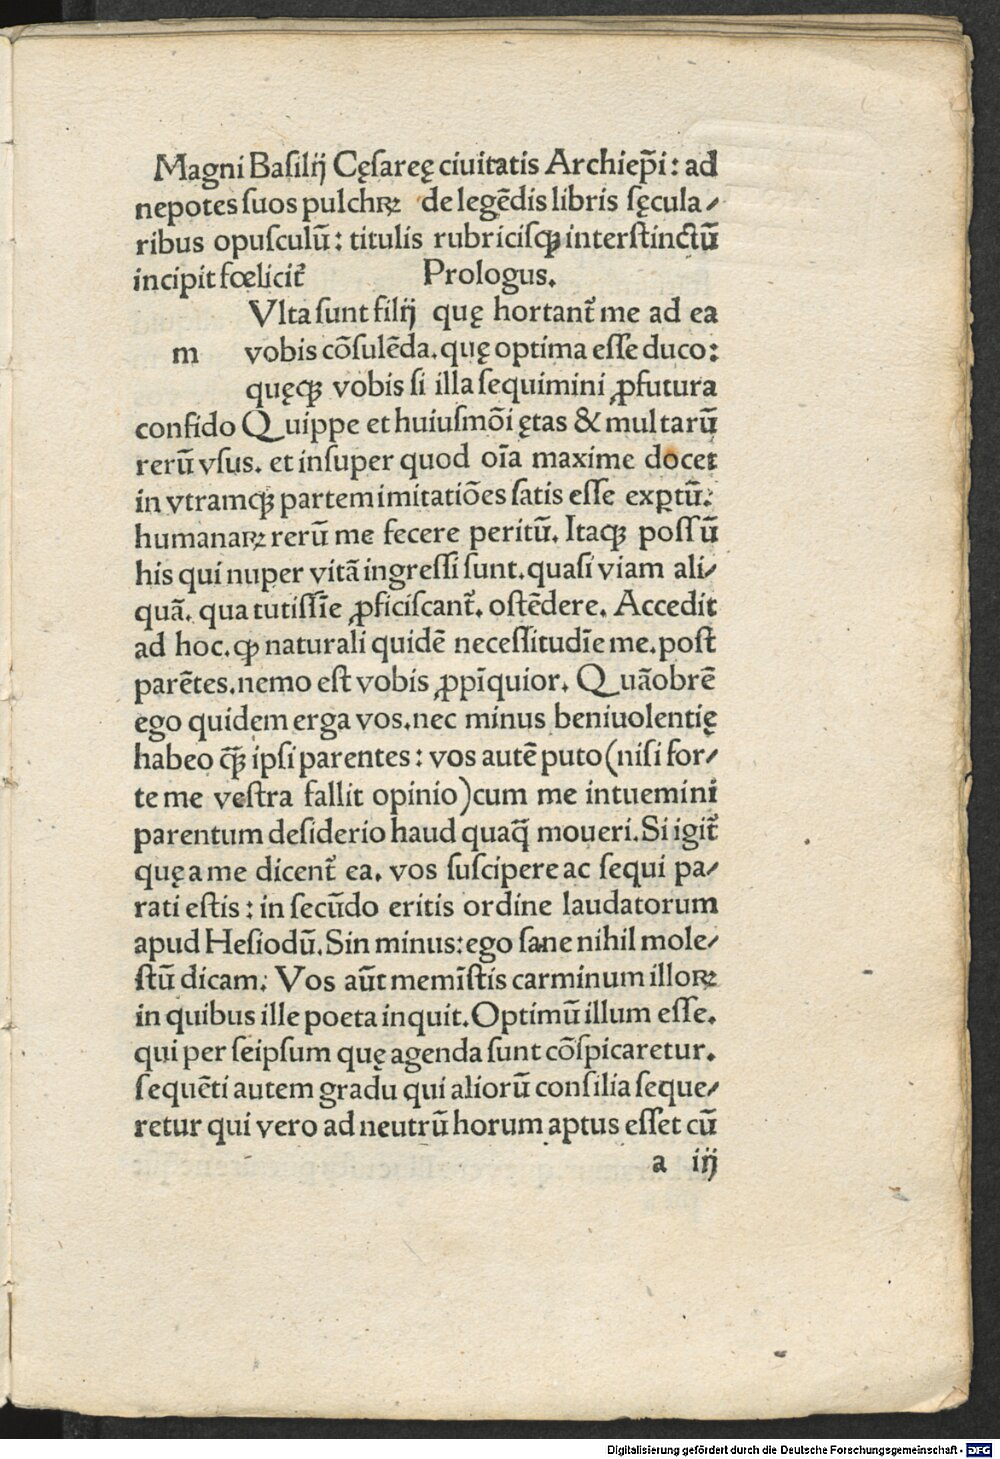 Magni Baſilij Cęſareę ciuitatis Archiep̄i: ad
nepotes ſuos pulchꝝ de legēdis libris ſęcula⸗
ribus opuſculū: titulis rubriciſqꝫ interſtinctū
incipit fœlicit᷑ Prologus.
Vlta ſunt filij quę hortant᷑ me ad ea
m vobis cōſulēda. quę optima eſſe duco:
quęqꝫ vobis ſi illa ſequimini ꝓfutura
confido Quippe et huiuſmōi ętas & multarū
rerū vſus. et inſuper quod oīa maxime docet
in vtramqꝫ partem imitatiōes ſatis eſſe exꝑtū:
humanaꝝ rerū me fecere peritū. Itaqꝫ poſſū
his qui nuper vitā ingreſſi ſunt. quaſi viam ali⸗
quā. qua tutiſſīe ꝓficiſcant᷑. oſtēdere. Accedit
ad hoc. ꝙ naturali quidē neceſſitudīe me. poſt
parētes. nemo eſt vobis ꝓpīquior. Quāobrē
ego quidem erga vos. nec minus beniuolentię
habeo q̄ꝫ ipſi parentes: vos autē puto (niſi for⸗
te me veſtra fallit opinio) cum me intuemini
parentum deſiderio haud quaq̄ moueri. Si igit᷑
quę a me dicent᷑ ea. vos ſuſcipere ac ſequi pa⸗
rati eſtis: in ſecūdo eritis ordine laudatorum
apud Heſiodū. Sin minus: ego ſane nihil mole⸗
ſtū dicam: Vos aūt memīſtis carminum illoꝝ
in quibus ille poeta inquit. Optimū illum eſſe.
qui per ſeipſum quę agenda ſunt cōſpicaretur.
ſequēti autem gradu qui aliorū conſilia ſeque⸗
retur qui vero ad neutrū horum aptus eſſet cū
a iij
Digitalisierung gefördert durch die Deutsche Forschungsgemeinschaft - DFG